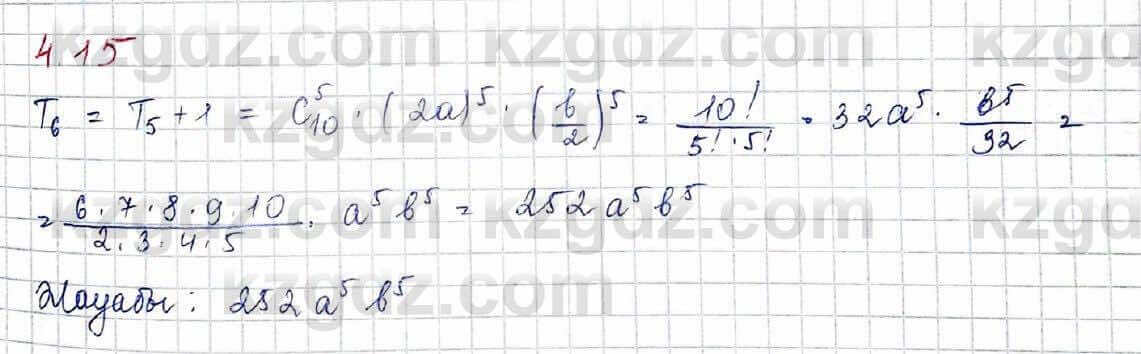 4.15
T₆ = T₅+1 = C⁵₁₀ · (2a)⁵ · (b/2)⁵ = 10!/(5!·5!) · 32a⁵ · b⁵/32 =
= (6·7·8·9·10)/(2·3·4·5) · a⁵b⁵ = 252a⁵b⁵
Жауабы: 252a⁵b⁵
kzgdz.com kzgdz.com kzgdz.com
kzgdz.com
kzgdz.com kzgdz.com kzgdz.com
kzgdz.com